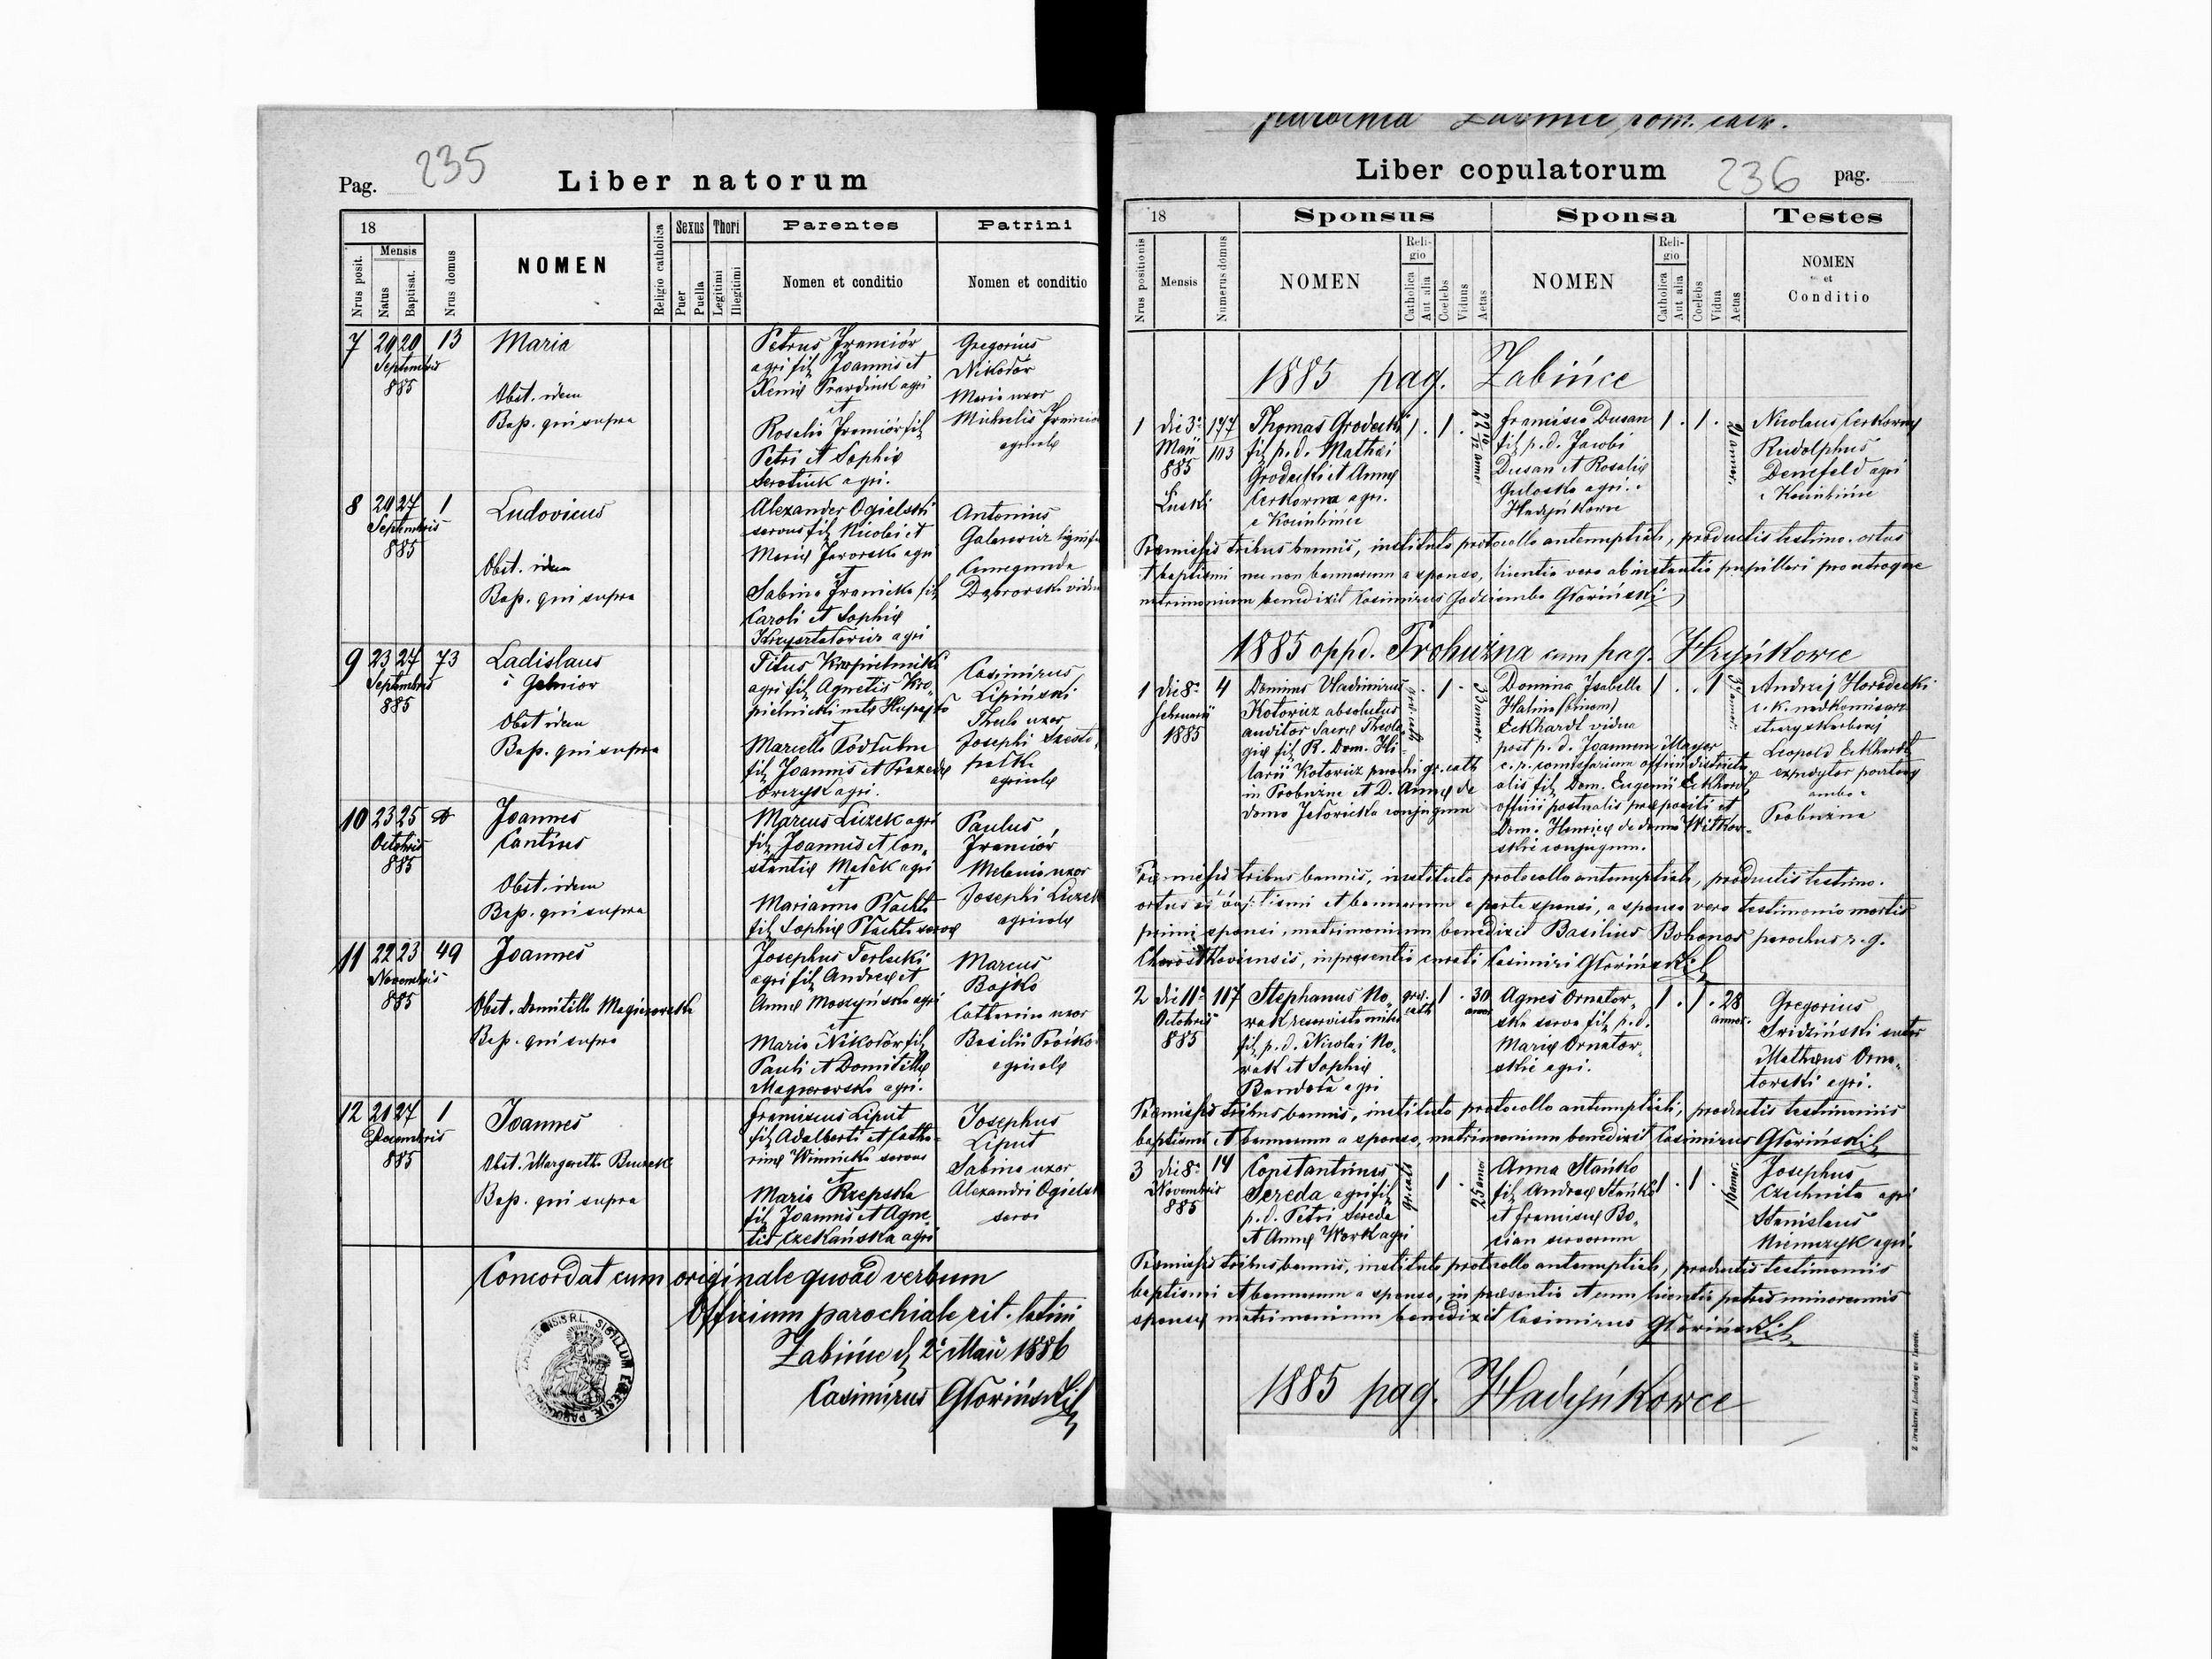 235
Pag.
Liber natorum
18
Nrus posit.
Mensis
Natus
Baptisat.
Nrus domus
NOMEN
Religio catholica
Sexus
Puer
Puella
Thori
Legitimi
Illegitimi
Parentes
Nomen et conditio
Patrini
Nomen et conditio
7 20 20 13 Maria
Septembris
885
Obst. idem
Bap. qui supra
Petrus Franciór
agri fil Joannis et
agri
et
Rosalia Franciór fil
Petri et Sophiæ
agri.
Gregorius
Nikodor
Maria uxor
Michaelis
agricolæ
8 20 27 1 Ludovicus
Septembris
885
Obst. idem
Bap. qui supra
Alexander Ogielski
servus fil Nicolai et
Mariæ Jaworska agri
et
Sabina Franicka fil
Caroli et Sophiæ
Krzyształowicz agri
Antonius
Cunegunda
Dąbrowska vidua
9 23 27 73 Ladislaus
Septembris
885
Obst. idem
Bap. qui supra
Titus Kropielnicki
agri fil Agnetis Kro-
pielnicki natæ
et
Marcella Podłubna
fil Joannis et Praxedæ
agri.
Casimirus
Lipiński
Thecla uxor
Josephi
agricolæ
10 23 25 Joannes
Octobris Cantius
885
Obst. idem
Bap. qui supra
Marcus Liczek agri
fil Joannis et Con-
stantiæ Matek agri
et
Marianna Płachta
fil Sophiæ Płachta servæ
Paulus
Franciór
Melania uxor
Josephi Liczek
agricolæ
11 22 23 49 Joannes
Novembris
885
Obst. Domitilla Magierowska
Bap. qui supra
Josephus Terlecki
agri fil Andreæ et
Annæ Moszyńska agri
et
Maria Nikodór fil
Pauli et Domitillæ
Magierowska agri.
Marcus
Bojko
Catharina uxor
Basilii
agricolæ
12 21 27 1 Joannes
Decembris
885
Obst. Margaretha
Bap. qui supra
Franciscus Liput
fil Adalberti et Catha-
rinæ Winnicka servus
et
Maria Rzepska
fil Joannis et Agne-
tis Czekańska agri
Josephus
Liput
Sabina uxor
Alexandri Ogielski
servi
Concordat cum originale quoad verbum
Officium parochiale rit. latini
Żabińce d. 2 Maii 1886
Casimirus Głoriński
Parochia Żabińce rom. cath.
Liber copulatorum
236
pag.
18
Nrus positionis
Mensis
Numerus domus
Sponsus
NOMEN
Religio
Catholica
Aut alia
Coelebs
Viduus
Aetas
Sponsa
NOMEN
Religio
Catholica
Aut alia
Coelebs
Vidua
Aetas
Testes
NOMEN
et
Conditio
1885 pag. Żabińce
1 die 3 177
Maii 103
885
Thomas Grodecki
fil p. d. Mathæi
Grodecki et Annæ
Cerkowna agri.
e Kociubińce
Francisca Dusan
fil p. d. Jacobi
Dusan et Rosaliæ
agri. e
Hadyńkowce
21 annor.
Nicolaus Cerkowny
Rudolphus
agri
e Kociubińce
Præmissis tribus bannis, instituto protocollo antenuptiali, productis testimo. ortus
et baptismi nec non bannorum a sponso, licentia vero ab instantia pupillari pro utroque
matrimonium benedixit Casimirus Godziemba Głoriński
1885 oppd. Probużna cum pag. Hryńkowce
1 die 8 4
Februarii
1885
Dominus Vladimirus
Kotowicz absolutus
auditor Sacræ Theolo-
giæ fil R. Dom. Hi-
larii Kotowicz parochi gr. cath
in Probużna et D. Annæ de
domo conjugum
33 annor.
Domina Isabella
Halina (binom)
Eckhardt vidua
post p. d. Joannem Mayer
officii districtu-
alis fil Dom. Eugenii Eckhardt
officii postualis præpositi et
Dom. Henricæ de domo Witkow-
skie conjugum.
Andrzej Horodecki
c. k. nadkomisarz
straży skarbowej
Leopold Eckhardt
expedytor pocztowy
ambo e
Probużna
Præmissis tribus bannis, instituto protocollo antenuptiali, productis testimo.
ortus et baptismi et bannorum e parte sponsi, a sponsa vero testimonio mortis
primi sponsi, matrimonium benedixit Basilius Bohonos parochus r. g.
in præsentia curati Casimiri Głoriński
2 die 11 117
Octobris
885
Stephanus No-
wak reservista miles
fil p. d. Nicolai No-
wak et Sophiæ
agri
græ. cath
30 annor
Agnes Ornator-
ska serva fil p. d.
Mariæ Ornator-
skie agri.
28 annor.
Gregorius
sutor
Mathæus Orna-
torski agri.
Præmissis tribus bannis, instituto protocollo antenuptiali, productis testimoniis
baptismi et bannorum a sponso, matrimonium benedixit Casimirus Głoriński
3 die 8 14
Novembris
885
Constantinus
Sereda agri fil
p. d. Petri Sereda
et Annæ Work agri
gr. cath
25 annor
Anna Stańko
fil Andreæ Stańko
et Franciscæ Bo-
cian servorum
Josephus
agri
Stanislaus
Niemczyk agri.
Præmissis tribus bannis, instituto protocollo antenuptiali, productis testimoniis
baptismi et bannorum a sponso, in præsentia et cum licentia patris minorennis
sponsæ matrimonium benedixit Casimirus Głoriński
1885 pag. Hadyńkowce
Z drukarni Ludowej we Lwowie.